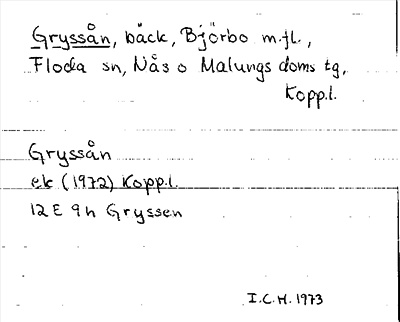 Gryssån, bäck, Björbo m.fl.,
Floda sn, Nås o Malungs doms tg,
Kopp.l.
Gryssån
ek (1972) Kopp.l.
12 E 9h Gryssen
I.C.H. 1973